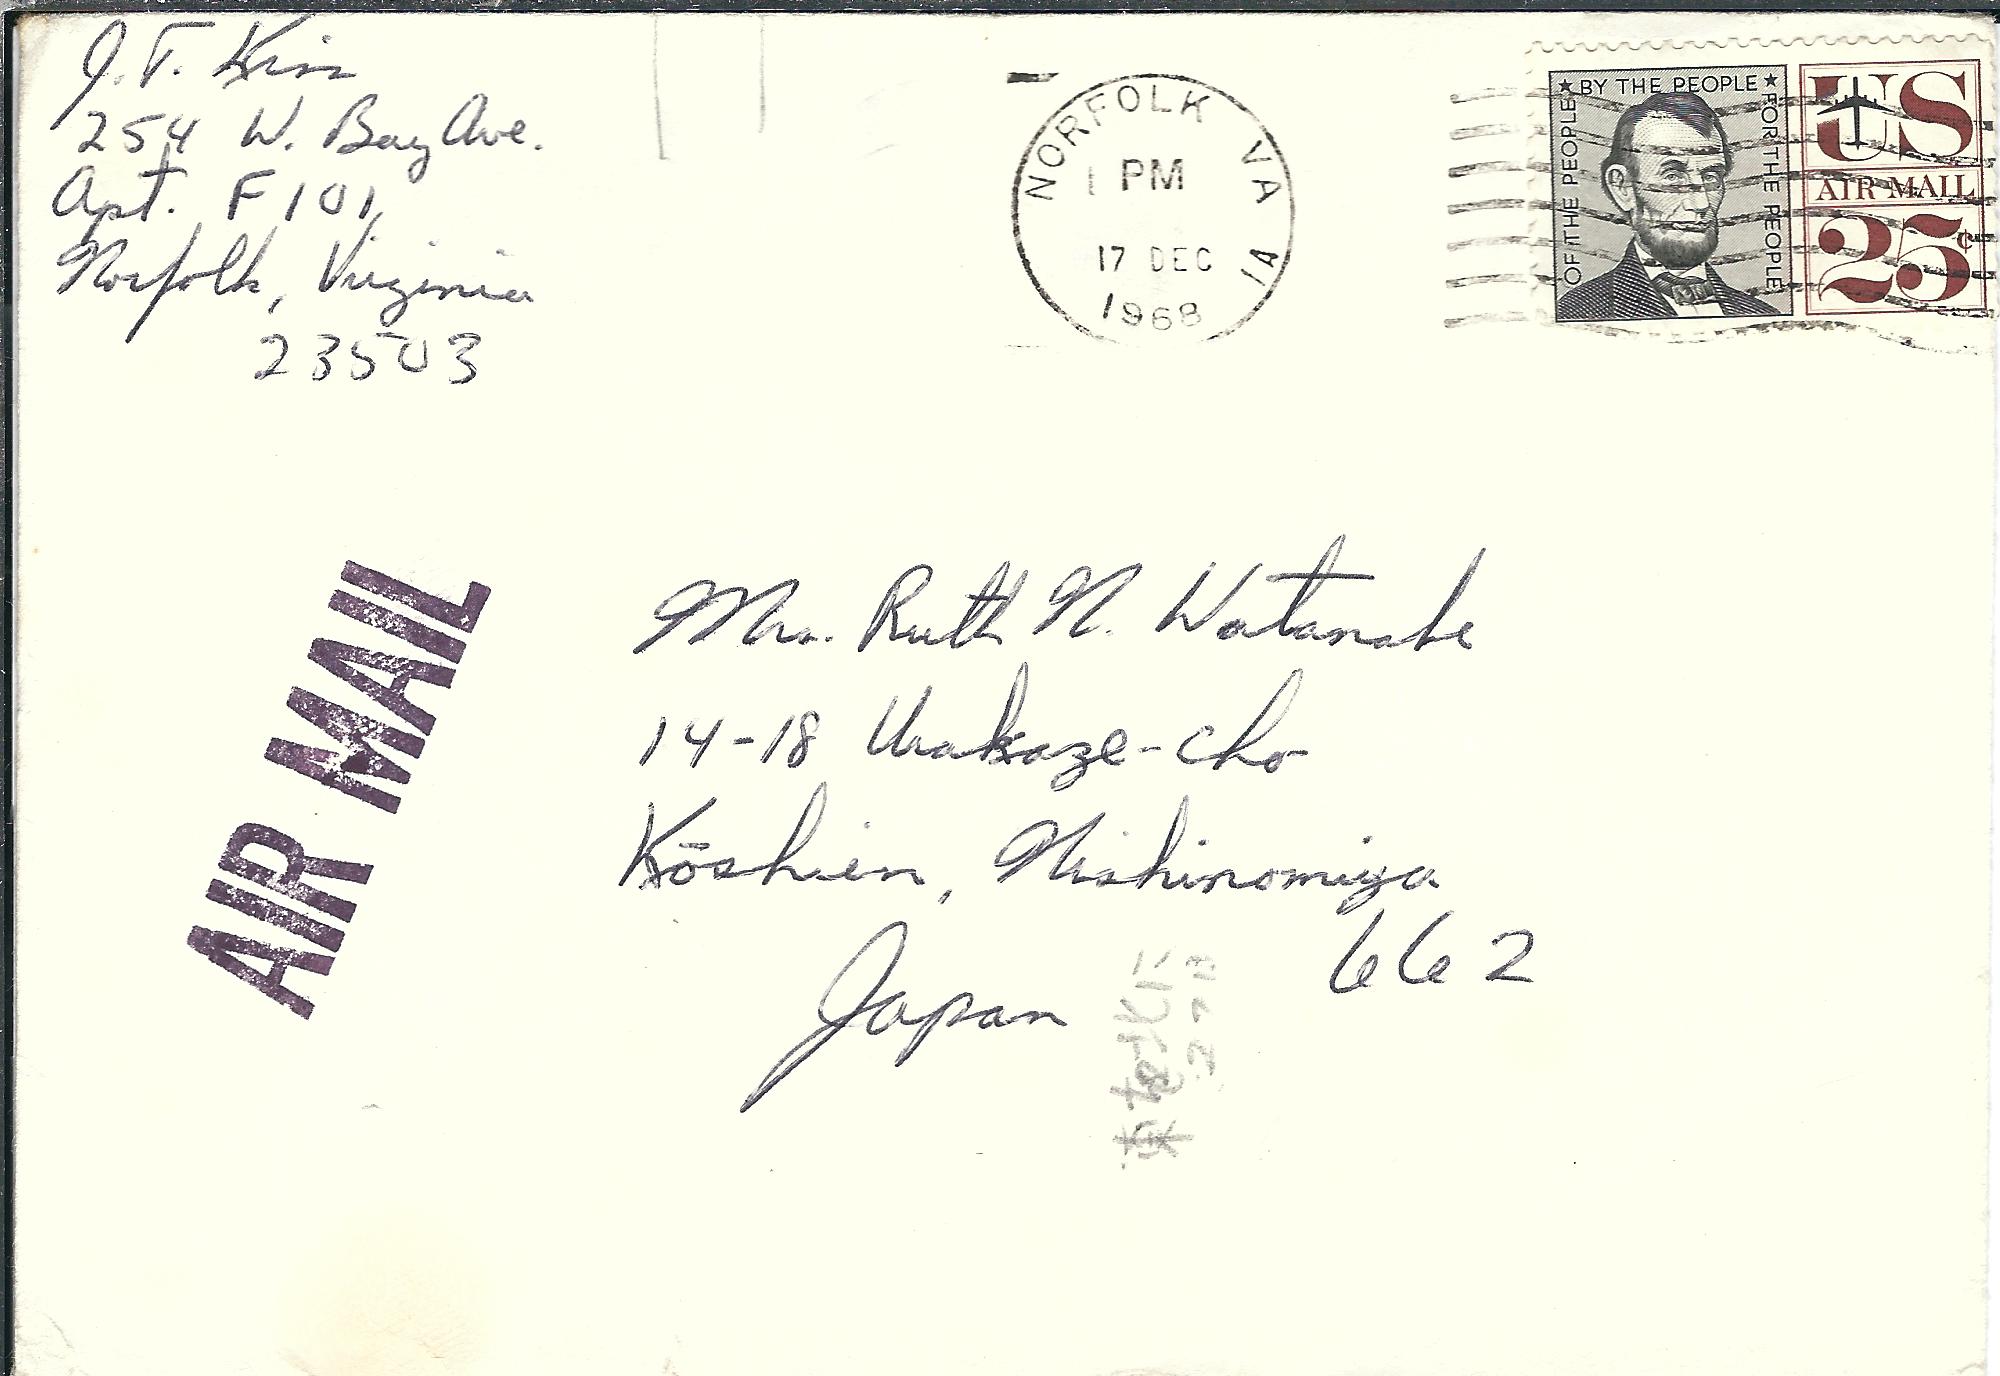 J. T. Kim
254 W. Bay Ave.
Apt. F101
Norfolk, Virginia
23503
NORFOLK VA
1 PM
17 DEC
1968
OF THE PEOPLE ★ BY THE PEOPLE ★ FOR THE PEOPLE
US
AIR MAIL
25¢
AIR MAIL
Mrs. Ruth N. Watanabe
14-18 Urakaze-cho
Kōshien, Nishinomiya
662
Japan